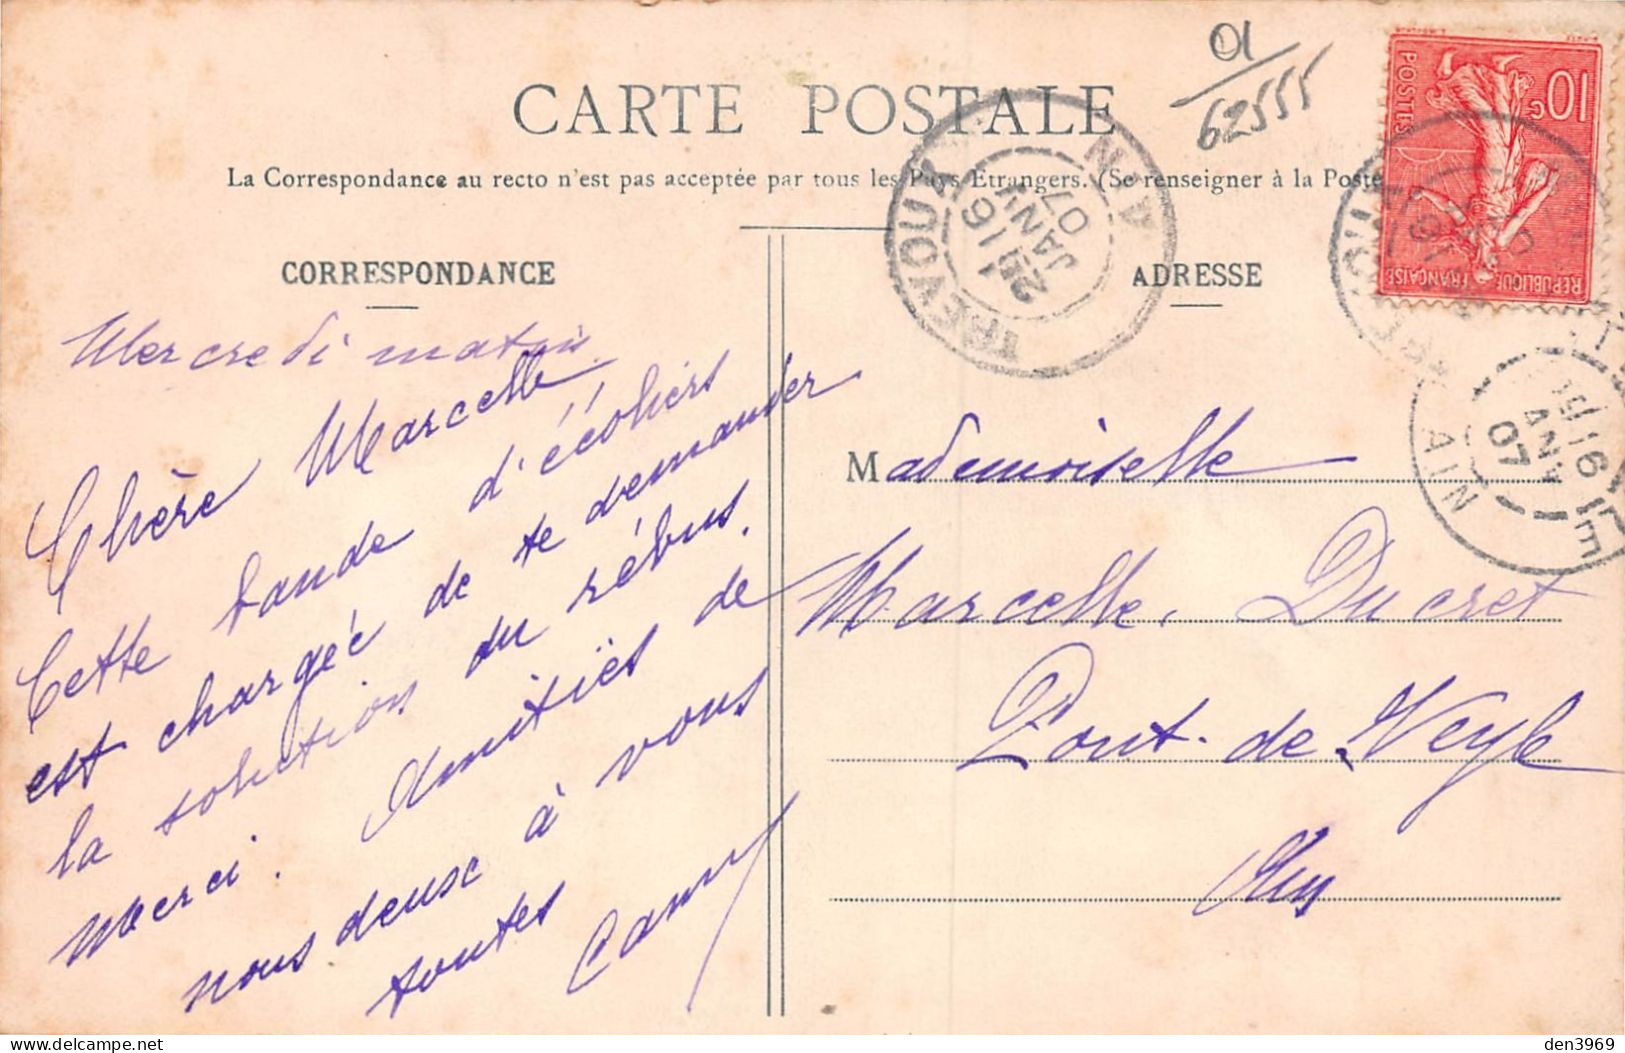 CARTE POSTALE
01
62555
La Correspondance au recto n'est pas acceptée par tous les Pays Etrangers. (Se renseigner à la Poste
CORRESPONDANCE
Mercredi matin.
Chère Marcelle
Cette bande d'écoliers
est chargée de te demander
la solution du rébus.
Merci. Amitiés de
nous deux à vous
toutes
ADRESSE
Mademoiselle
Marcelle Ducret
Pont-de-Veyle
Ain
TREVOUX AIN
2E 16
JANV
07
10c
POSTES
REPUBLIQUE FRANÇAISE
16
JANV
07
AIN
den3969